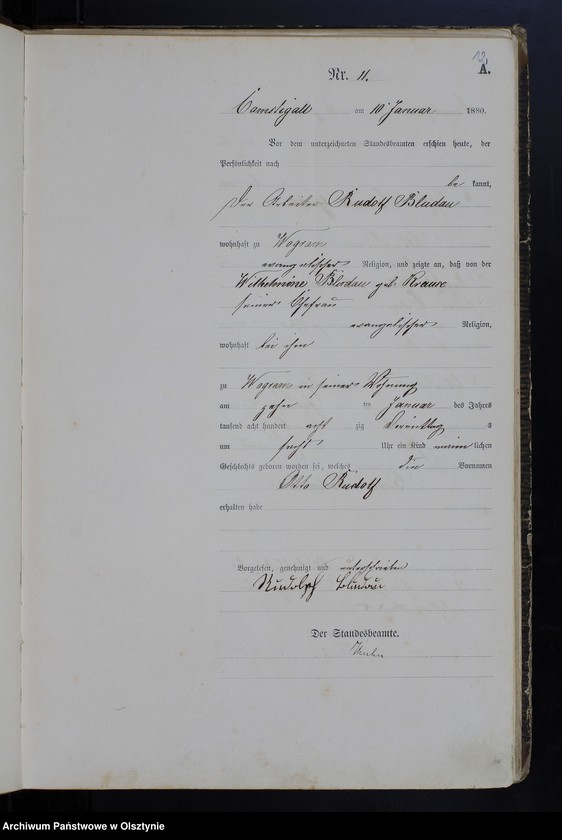 12.
A.
Nr. 11.
Camstigall am 10 Januar 1880.
Vor dem unterzeichneten Standesbeamten erschien heute, der
Persönlichkeit nach
be kannt,
der Arbeiter Rudolf Bludau
wohnhaft zu Wogram
evangelischer Religion, und zeigte an, daß von der
Wilhelmine Bludau geb. Krause
seiner Ehefrau
evangelischer Religion,
wohnhaft bei ihm
zu Wogram in seiner Wohnung
am zehn ten Januar des Jahres
tausend acht hundert acht zig Vormittag s
um sechs Uhr ein Kind männ lichen
Geschlechts geboren worden sei, welches die Vornamen
Otto Rudolf
erhalten habe
Vorgelesen, genehmigt und unterschrieben
Rudolph Bludau
Der Standesbeamte.
Archiwum Państwowe w Olsztynie